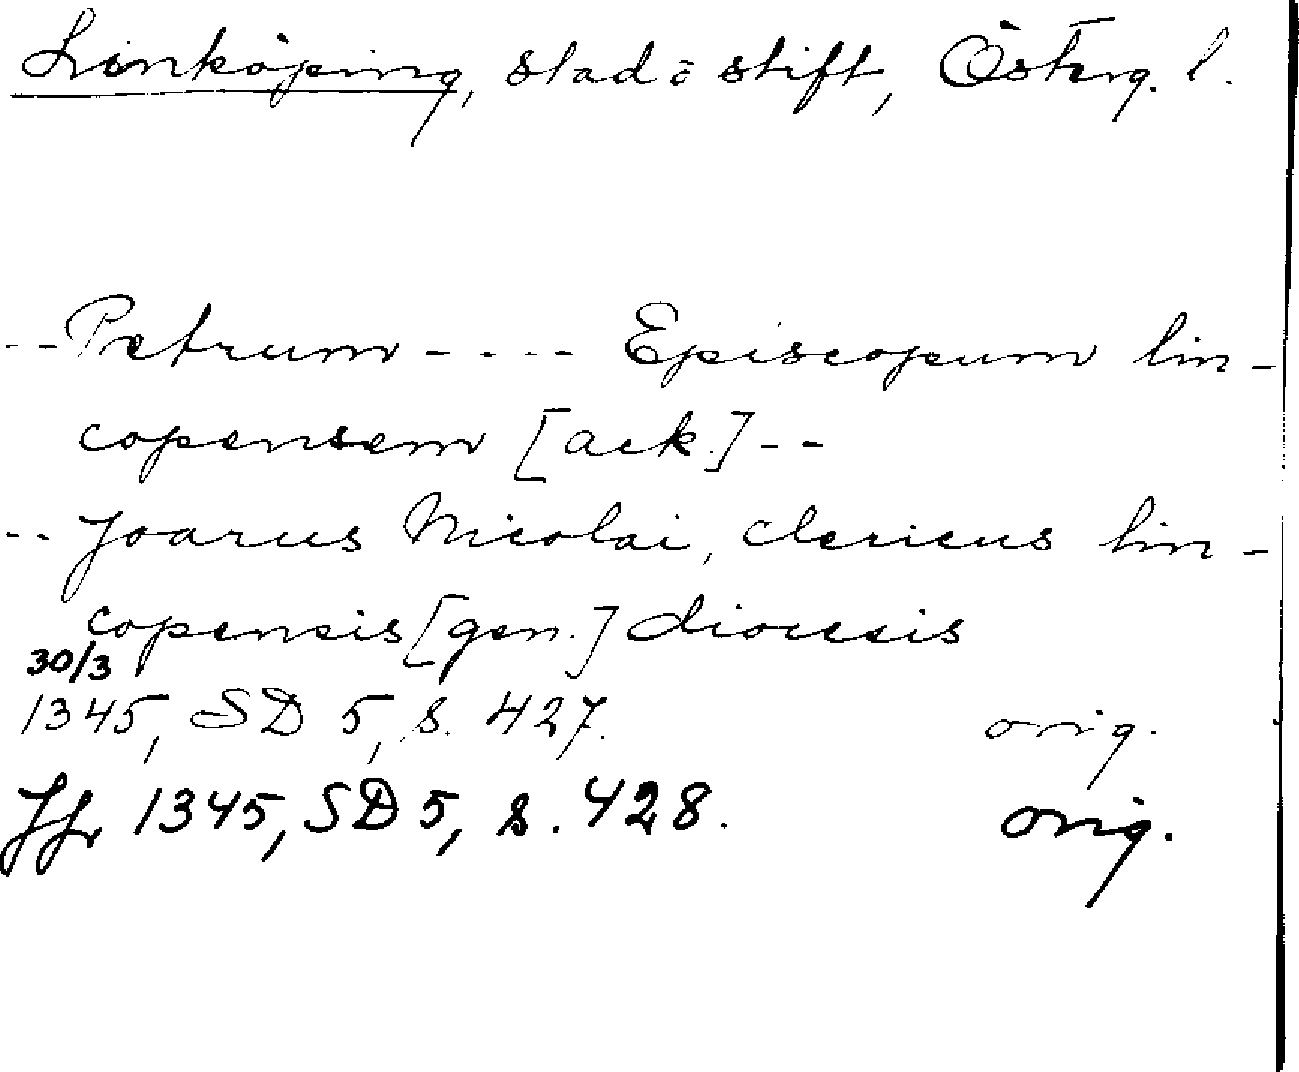 Linköping, stad o stift, Österg. l.
-- Petrum - .... Episcopum lin-
copensem [ack.] --
-- Joarus Nicolai, clericus lin-
copensis [gen.] diocesis
30/3
1345, SD 5, s. 427. orig.
Jfr 1345, SD 5, s. 428. orig.